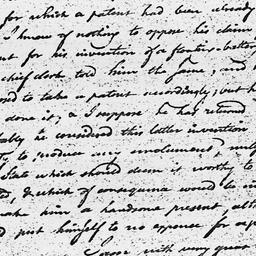 for which a patent had been already
I know of nothing to oppose his claim
for his invention of a floating-batter
chief clerk told him the same, and
to take a patent accordingly; but h
done it; & I suppose he has returned
he considered this latter invention
to produce any emolument,
State which should deem it worthy to
& which of consequence would be
make him a handsome present,
put himself to no expense for a p
with very great